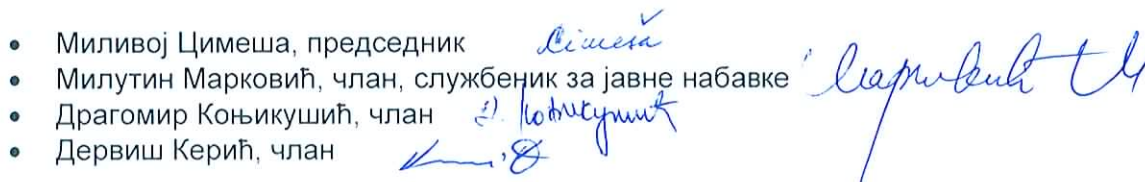 • Миливој Цимеша, председник Cimeša
• Милутин Марковић, члан, службеник за јавне набавке Марковић М
• Драгомир Коњикушић, члан Д. Коњикушић
• Дервиш Керић, члан